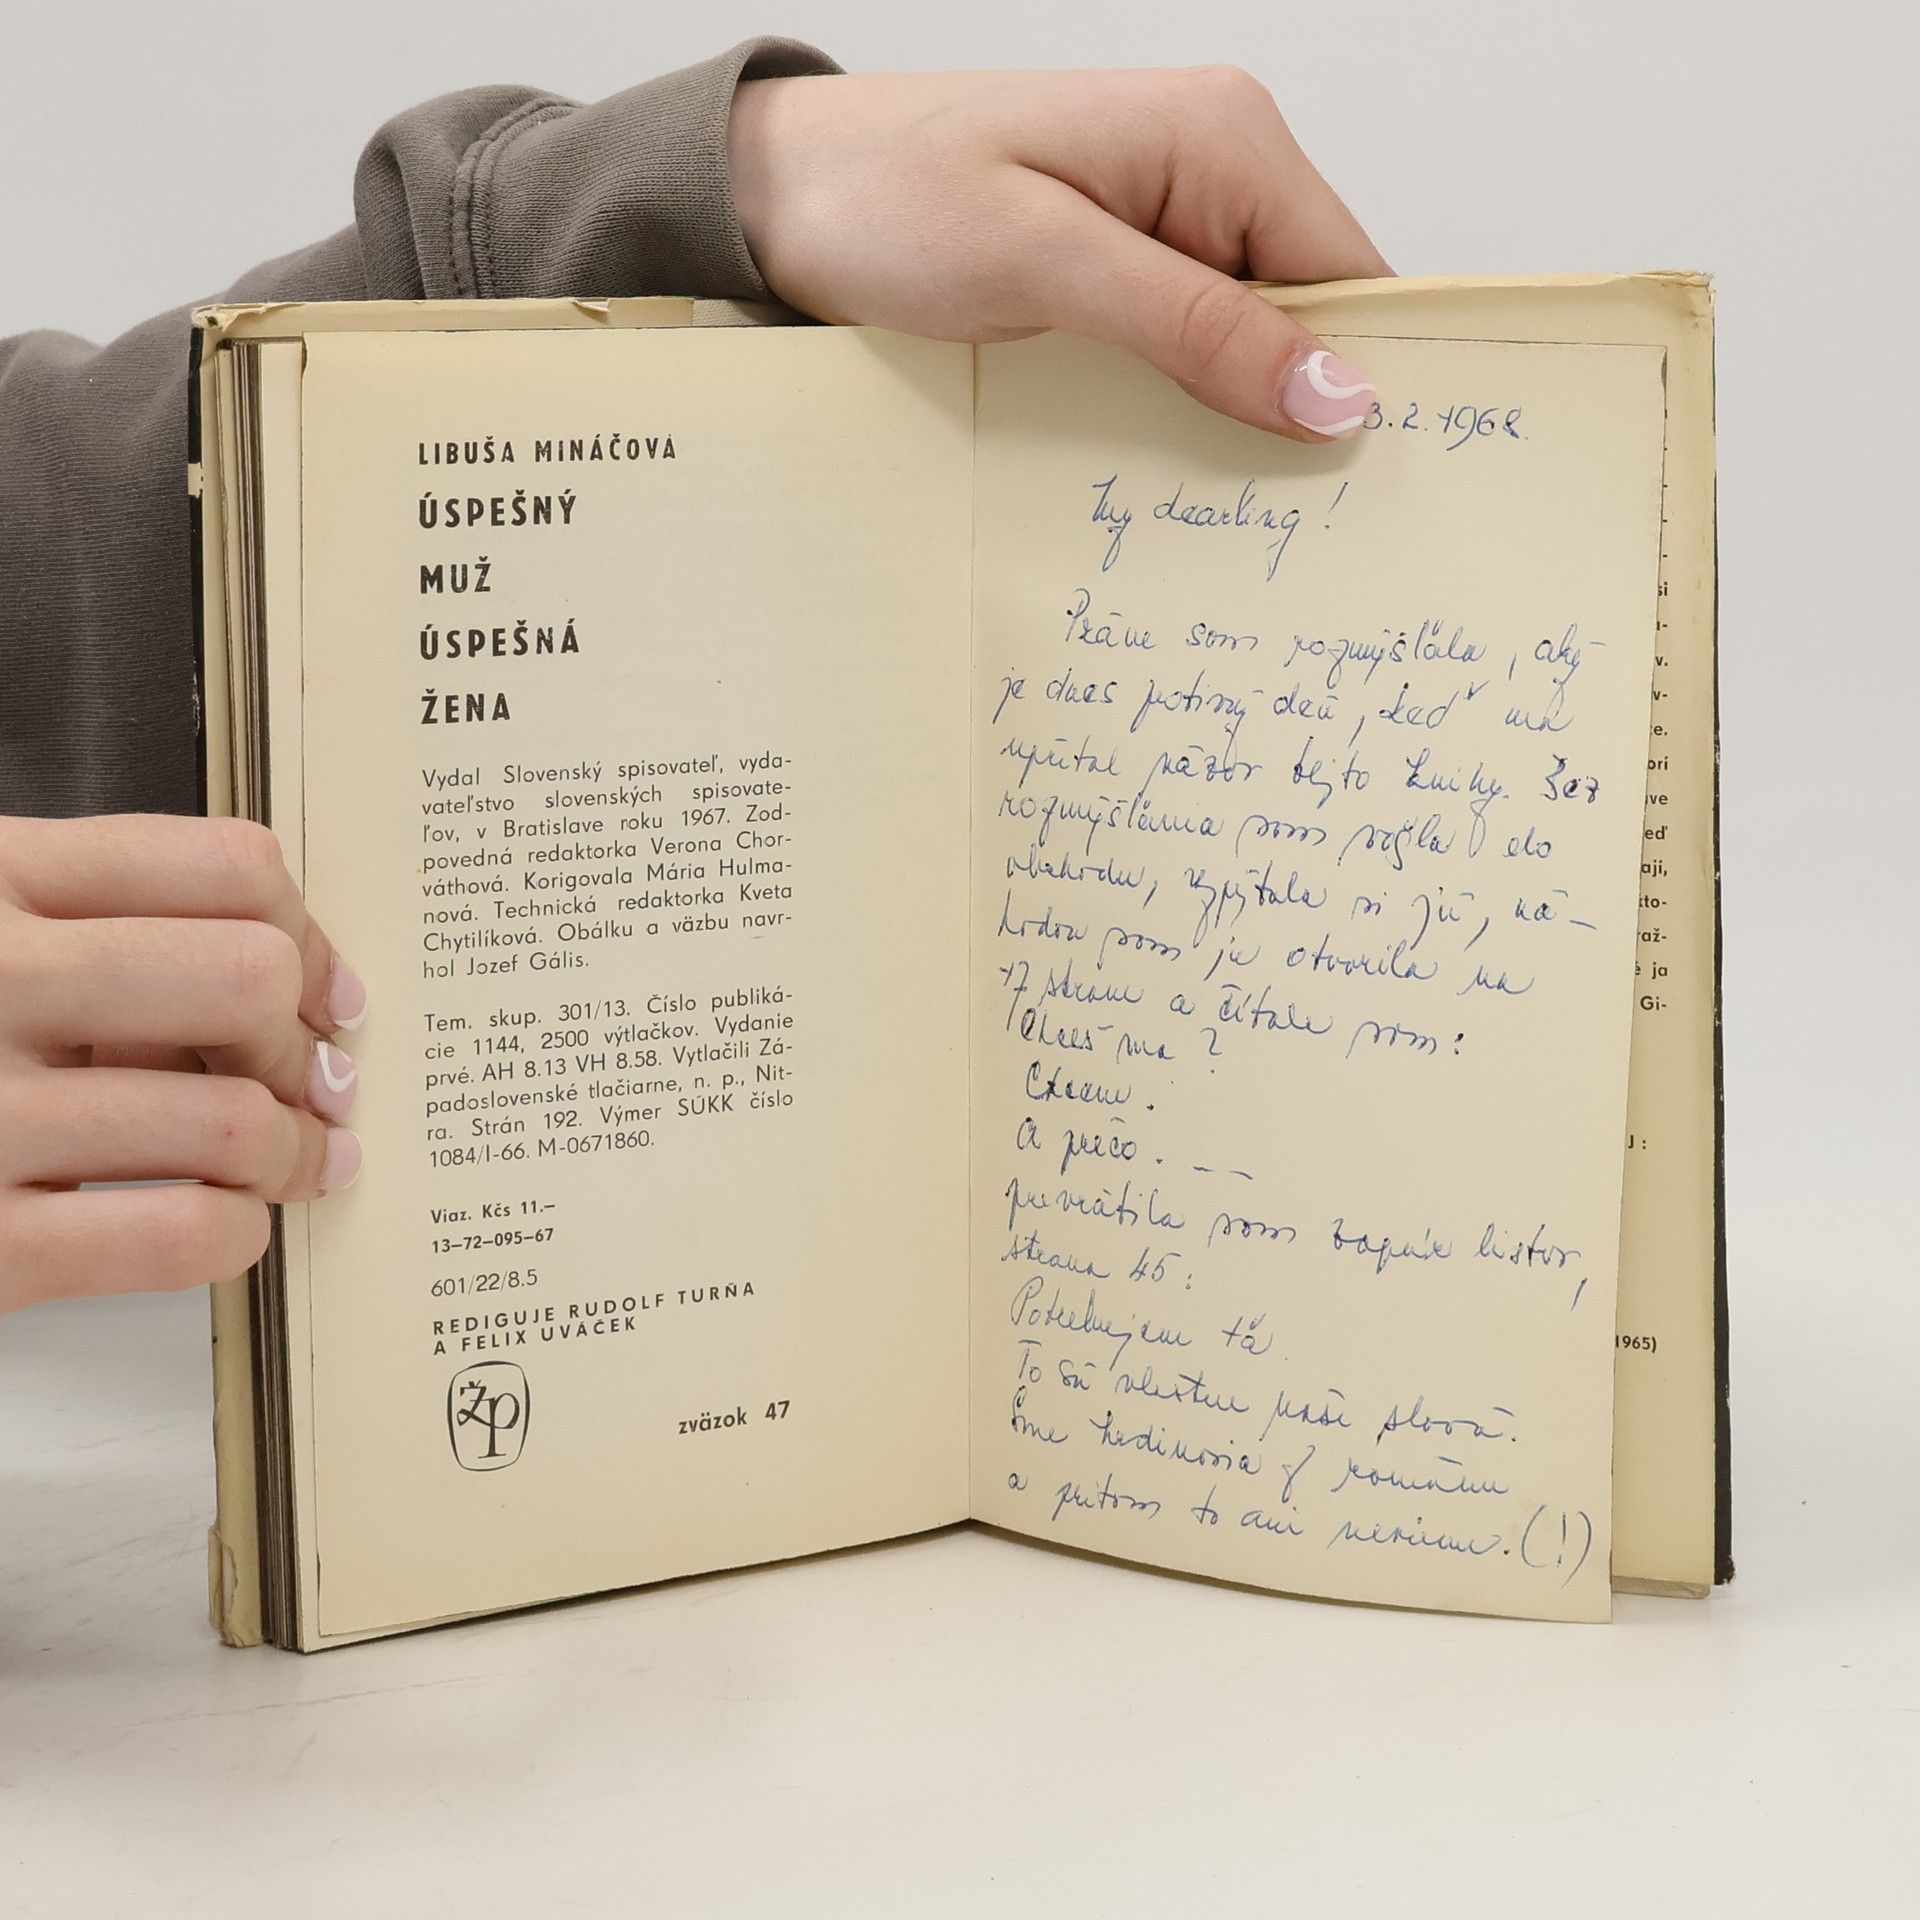 LIBUŠA MINÁČOVÁ
ÚSPEŠNÝ
MUŽ
ÚSPEŠNÁ
ŽENA
Vydal Slovenský spisovateľ, vyda-
vateľstvo slovenských spisovate-
ľov, v Bratislave roku 1967. Zod-
povedná redaktorka Verona Chor-
váthová. Korigovala Mária Hulma-
nová. Technická redaktorka Kveta
Chytilíková. Obálku a väzbu navr-
hol Jozef Gális.
Tem. skup. 301/13. Číslo publiká-
cie 1144, 2500 výtlačkov. Vydanie
prvé. AH 8.13 VH 8.58. Vytlačili Zá-
padoslovenské tlačiarne, n. p., Nit-
ra. Strán 192. Výmer SÚKK číslo
1084/I-66. M-0671860.
Viaz. Kčs 11.–
13–72–095–67
601/22/8.5
REDIGUJE RUDOLF TURŇA
A FELIX UVÁČEK
ŽP
zväzok 47
3.2.1968.
My dearling!
Práve som rozmýšľala, aký
je dnes potivný deň, keď ma
upútal názov tejto knihy. Bez
rozmýšľania som vošla do
obchodu, vypýtala si ju, ná-
hodou som ju otvorila na
17 strane a čítala som:
Chceš ma?
Chcem.
A prečo. — —
prevrátila som zopár listov,
strana 45:
Potrebujem ťa
To sú vlastne naše slová.
Sme hrdinovia z románu
a pritom to ani nevieme. (!)
si
v.
v-
e.
ori
ve
eď
ají,
kto-
raž-
ja
Gi-
J:
1965)